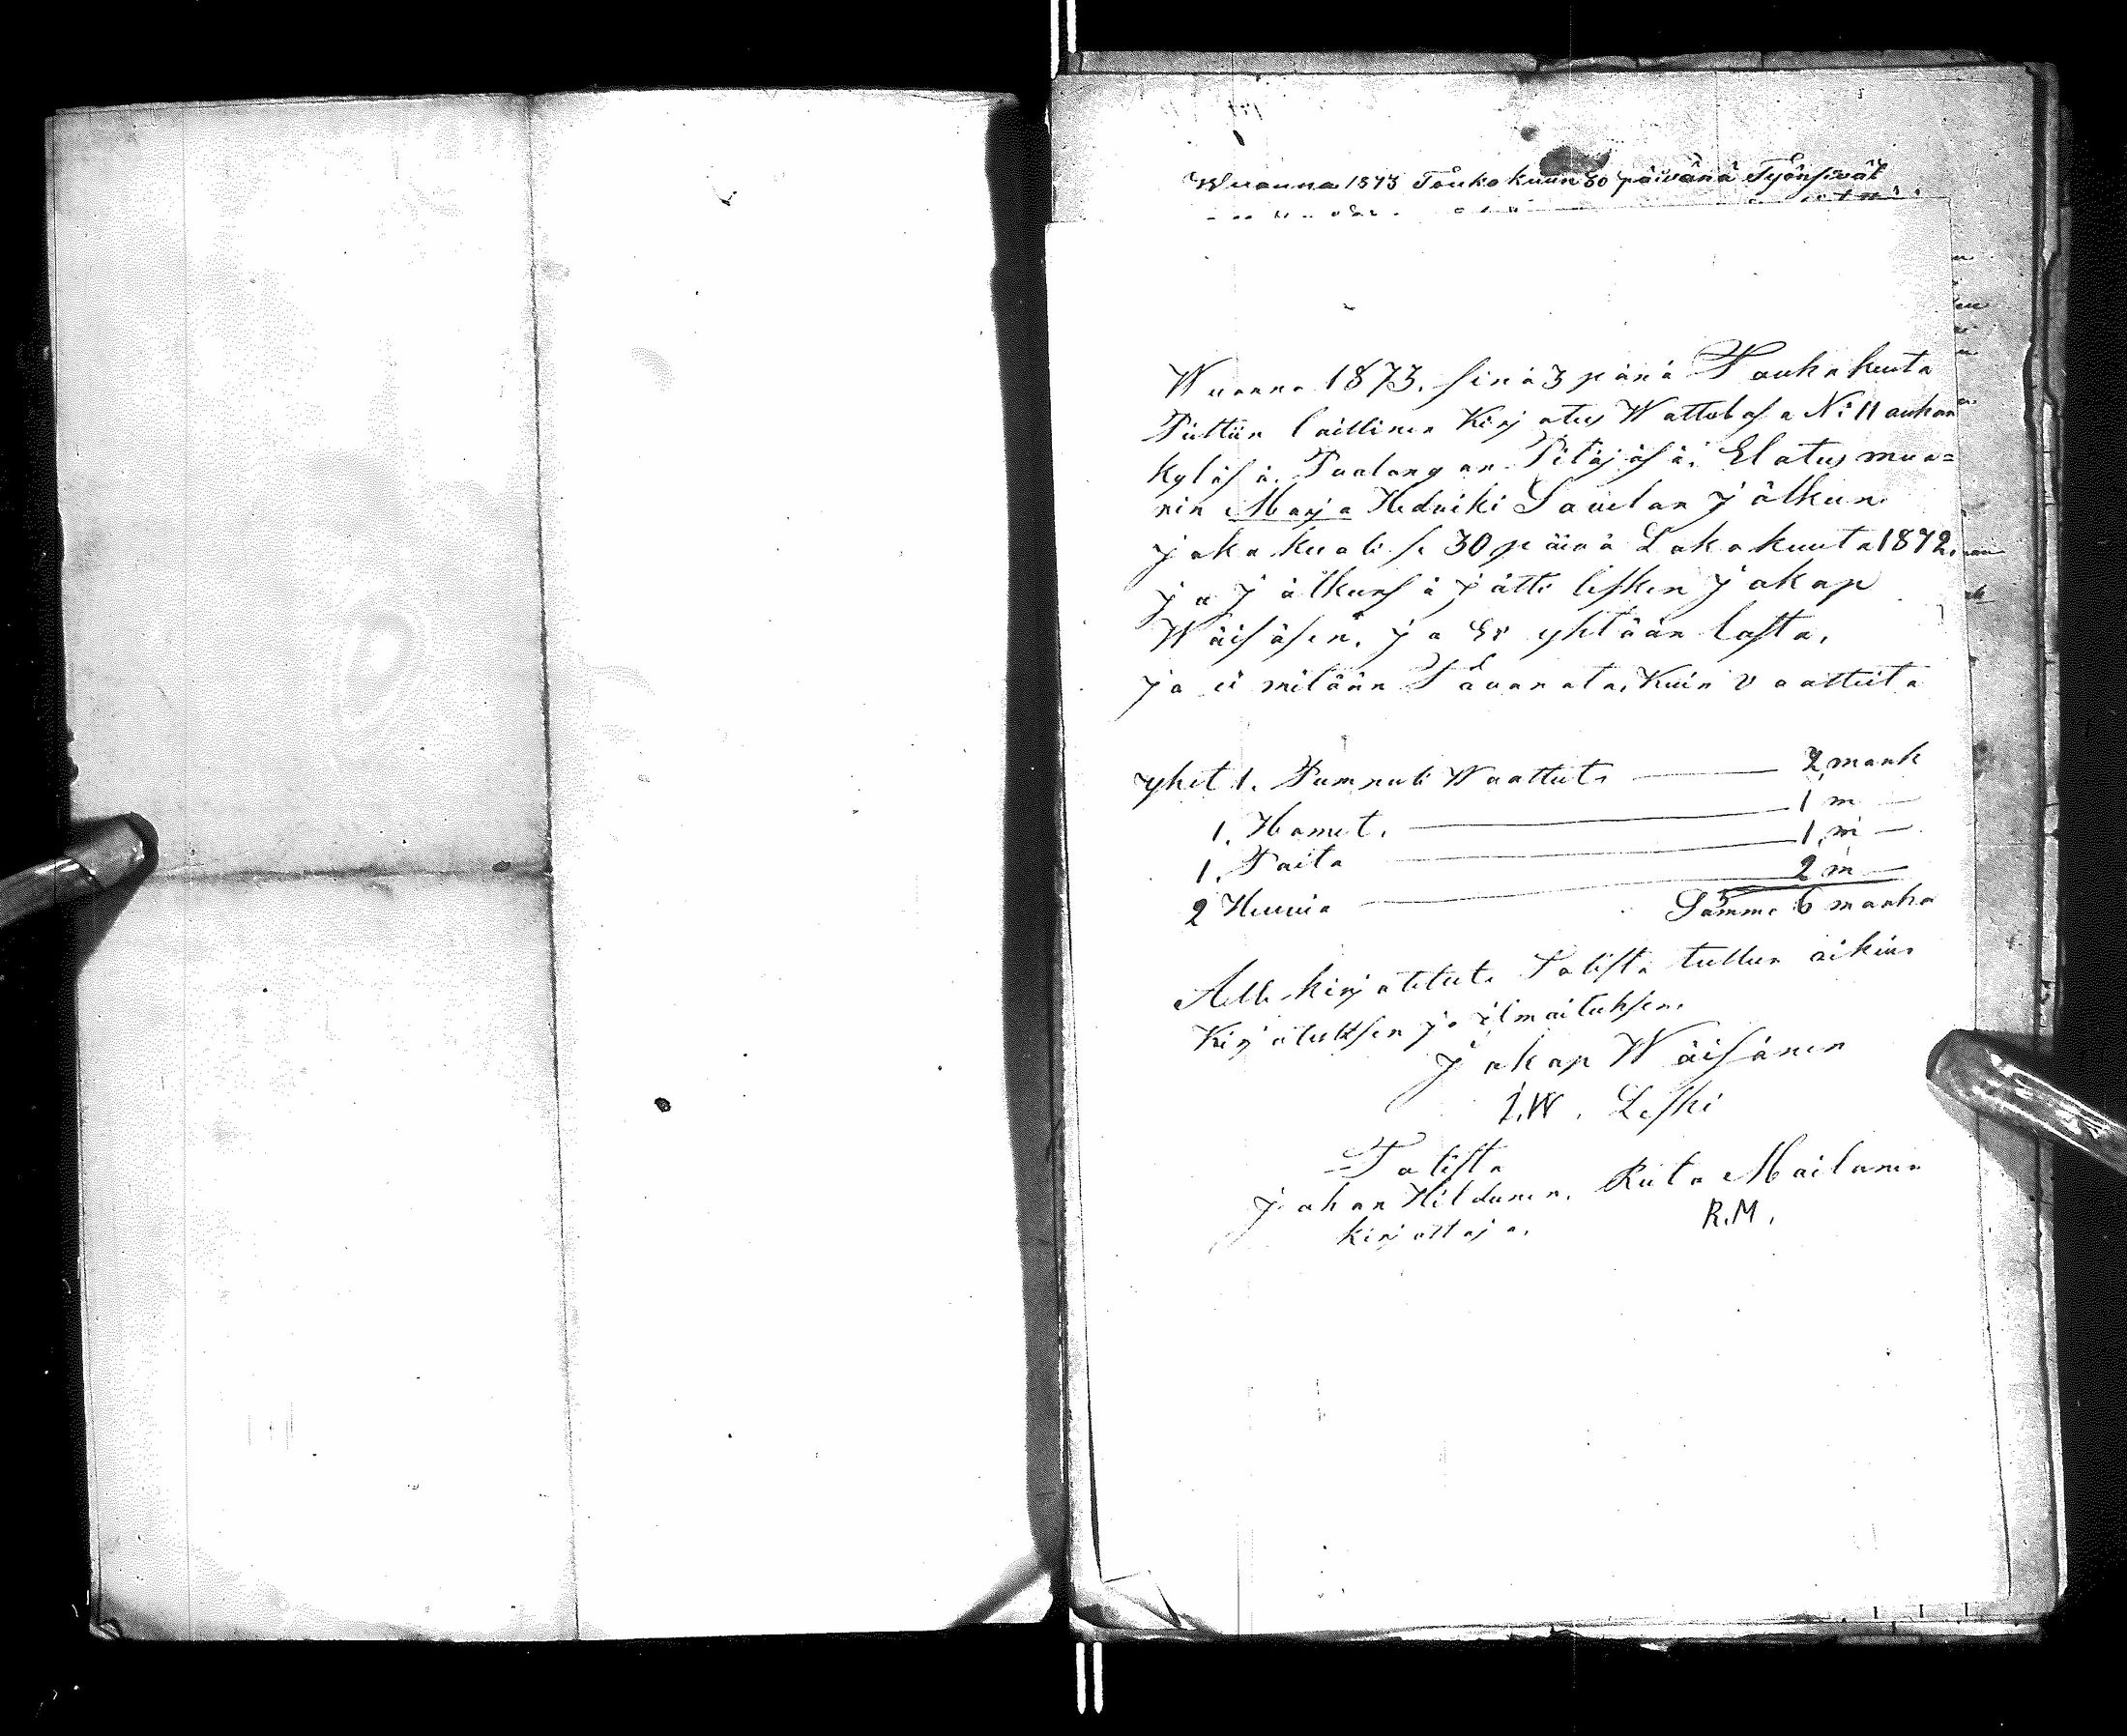 Wuonna 1873 Toukokuun 30 päivänä Työnsivät
Wuonna 1873. sinä 3 pänä Toukokuuta
Pidttiin laillinen Kirjotus Wattolasa N: 11 auhon
kyläsä. Paolangan Pitäjäsä. Elatus mua=
rin Marja Hedviki Sauelan jälkun
joka kuoli se 30 päivä Lokokuuta 1872.
ja jälkunsä jätti lesken jakap
Wäisäsen, ja Ei yhtään lasta,
ja ei mitään Tavarata, Kuin vaatteita
yhet 1. Pumpuli Waattut. 2 mark
1. Hamet. 1 m
1. Paita 1 m
2 Huivia 2 m
Summa 6 marka
Alle kirjotetut. Totista tullun oikius
Kirjotuksen ja ilmoituksen.
Jakap Wäisänen
I.W. Leski
Totista
Johan Hildunen. Riita Moilanen
kirjottaja. R.M.